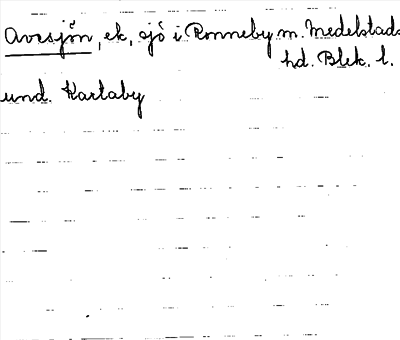 Avesjön, ek, sjö i Ronneby m. Medelstads
hd. Blek. l.
und. Karlaby